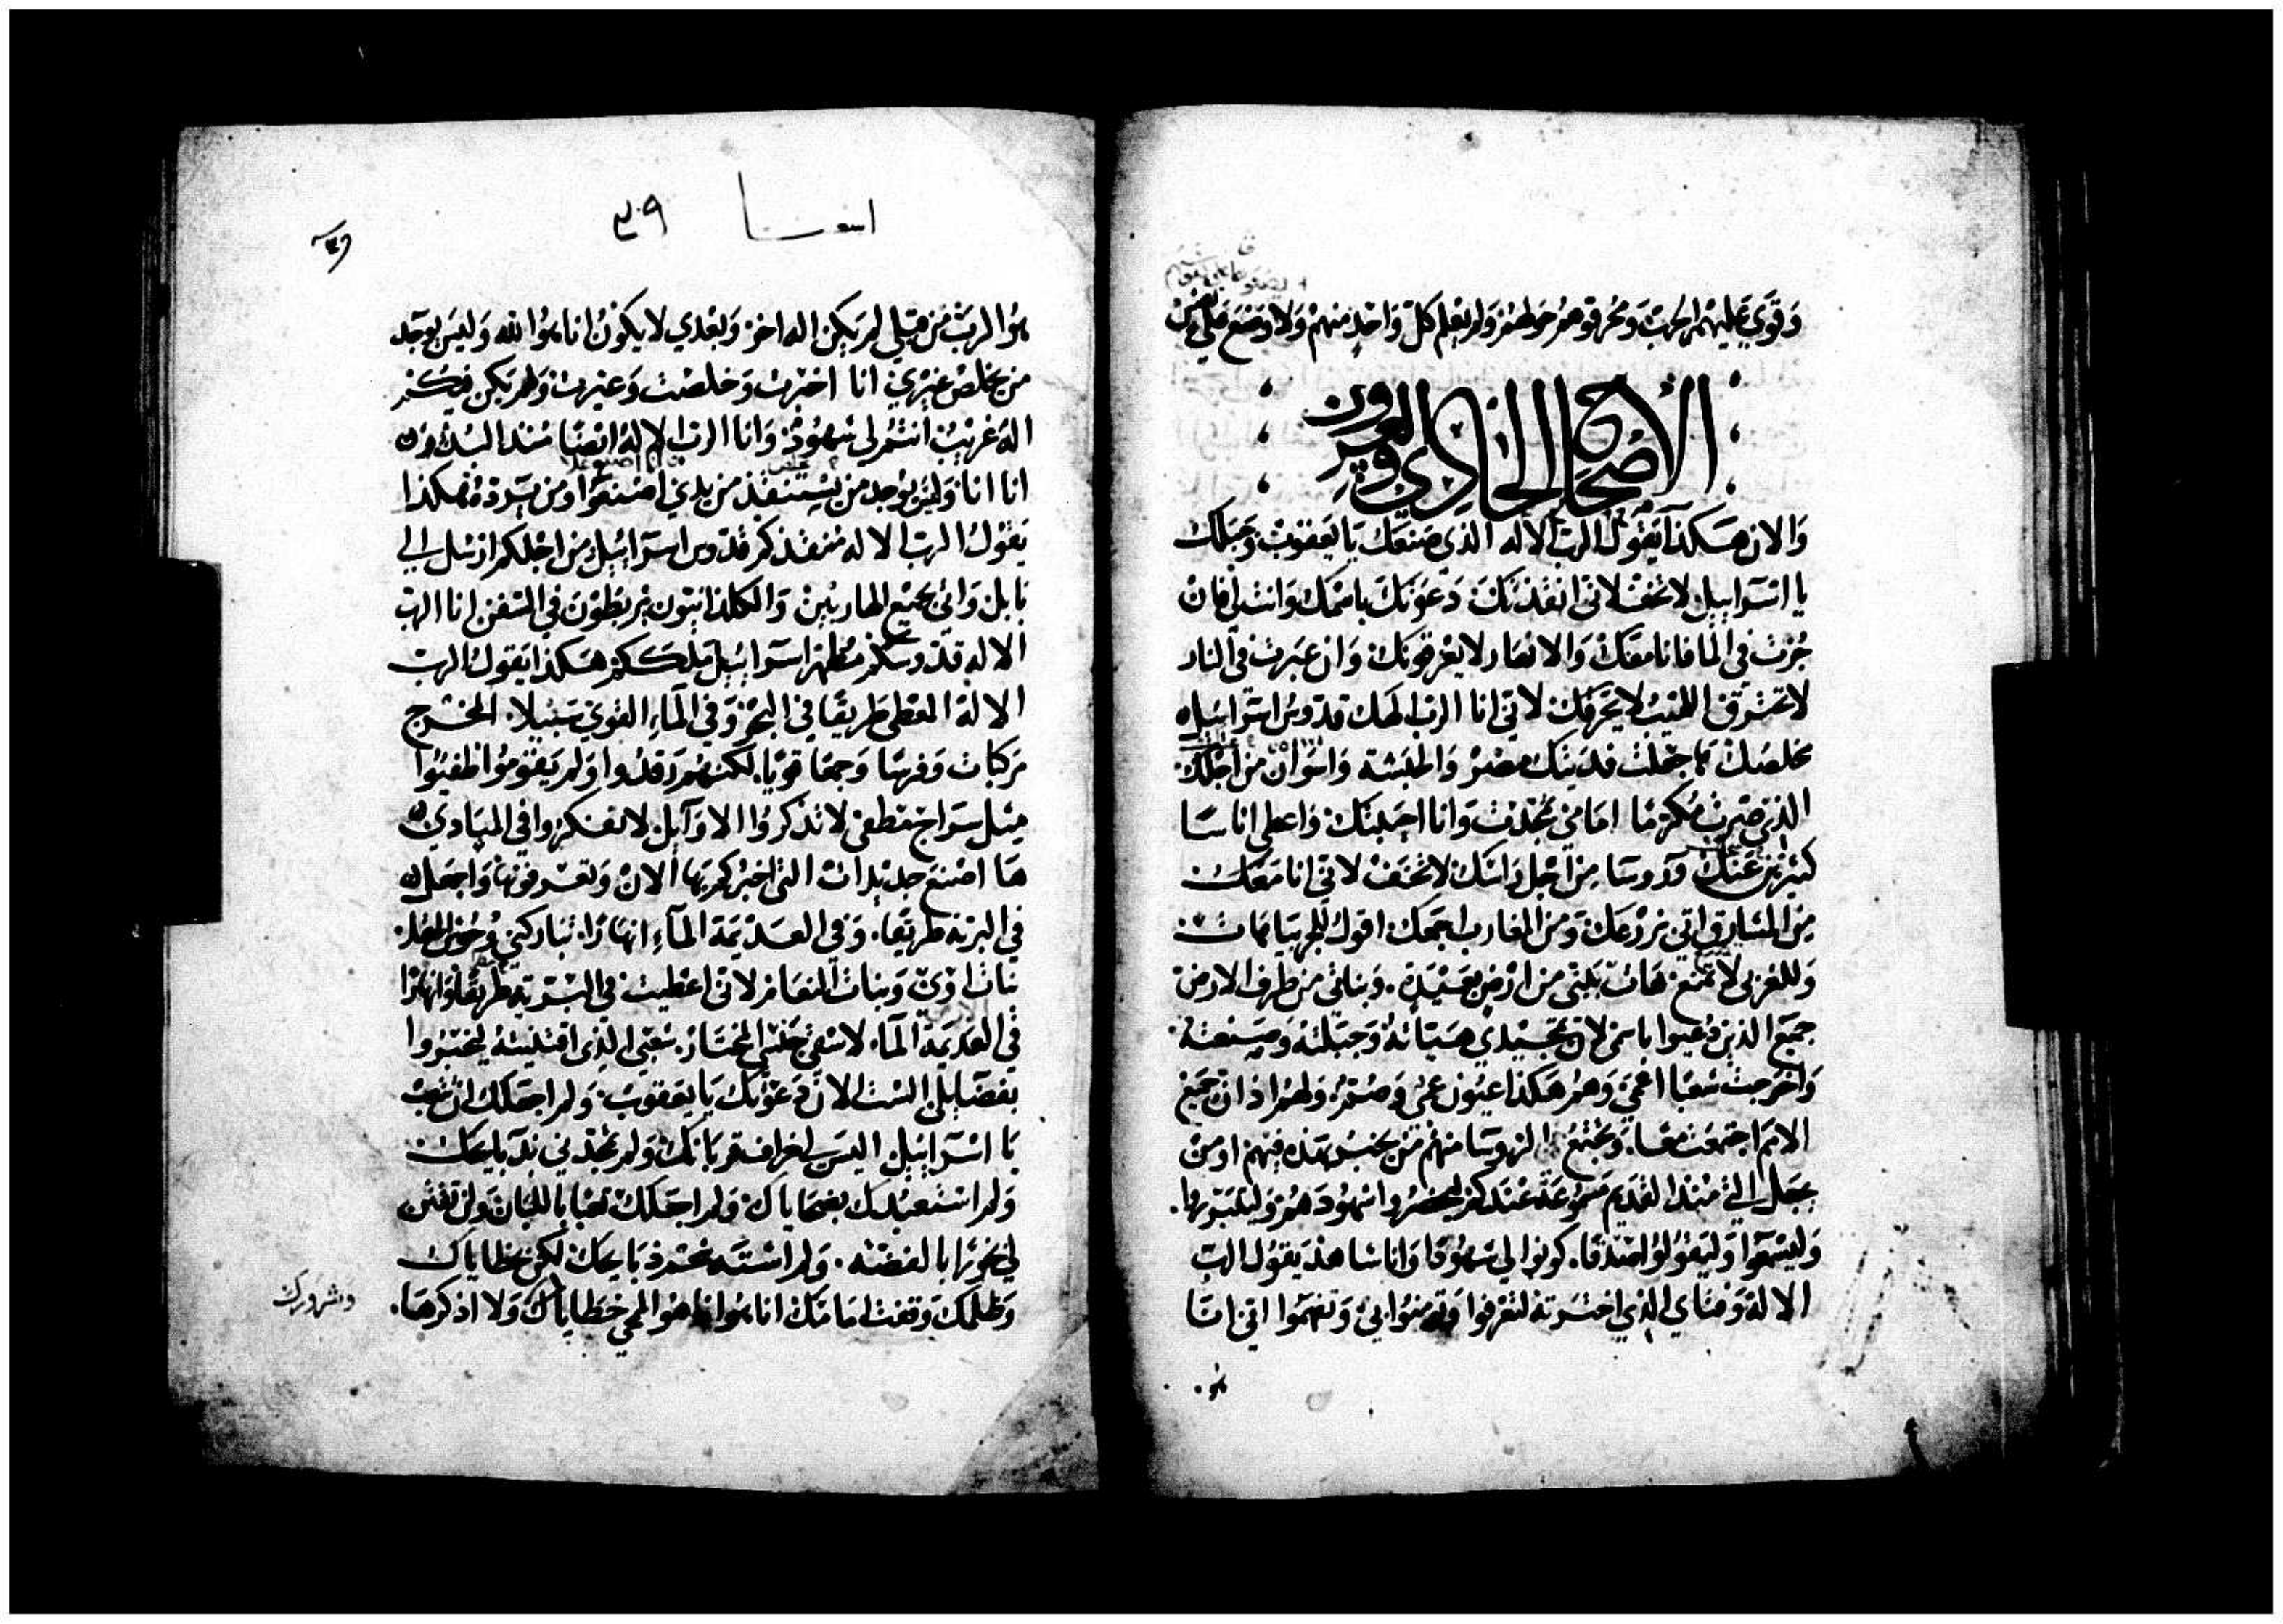 وَقَوِيَ عَليهُم الحرب وَمحرقوهم حَولهُم وَلم يَعلم كلّ وَاحِدٍ منهم وَلا وضَع على
الأصحاح الحَادِي وَالعِشرون
وَالان هَكذا يَقول الرب الاله الذي صَنعَك يَا يَعقوب وَجَبلك
يا اسْرَاييل لا تخف لاني انقذتك دَعَوتك باسمك وَانت لي فان
جُزت في الما فانا معَك وَالانهار لا يغرقونك وَان عَبرت في النار
لا تحترق اللهيب لا يحرقك لاني انا الرب الهك قدوس اسراييل
مخلصك جعلت فديتك مصر وَالحبَشة وَاسوَان من اجلك
الذي صرت مكرمًا امامي مجدت وَانا احببتك وَاعطى اناسَا
كثيرين عَنك وروسَا مِن اجل رَاسك لا تخف لاني انا معَك
مِن المشارق اتي بزرعك وَمن المغارب اجمعك اقول للجربيا هَات
وَللغربي لا تمنع هَات بَنيّ من ارض بعيدة. وَبناتي من طرف الارض
جميع الذين دُعيوا باسمي لاني بمجدي هَيّاته وَجَبلته وصَنعته
وَاخرجت شعبًا اعمى وَهم هَكذا عيون عمي وَصُم وَلهم اذان جميع
الامم اجتمعت معًا. وَيجتمع الروسَا منهم من يخبر بهَذه فيهم او من
يجعل الي منذ القديم مسموعة عندكم ليحضروا شهودهم وَليتبرّرا.
وَليسمَعوا وَليقولوا صدقًا. كونوا لي شهودًا وَانا شاهد يَقول الرب
الاله وَفتاي الذي اخترته لتعرفوا وَتومنوا بي وَتفهَموا اني انا
هو
اشعيا ٣٩
٣٩
هوُ الرب من قبلي لم يكن اله اخر وَبعدي لا يكون انا هوُ الله وَليس يوجد
من يخلص غيري انا اخبرت وَخلصت وَعيرت وَلم يكن فيكم
اله غريب انتُم لي شهود وَانا الرب الاله ايضًا منذ البدء
انا انا وَليس يوجد من يستنقذ من يدي اصنع وَمن يرده هكذا
يَقول الرب الاله منقذكم قدوس اسراييل من اجلكم ارسل الي
بَابل وَاثير جميع الهاربين وَالكلدانيون يربطون في السفن انا الرب
الاله قدوسكم مُظهر اسراييل ملككم هكذا يَقول الرب
الاله المعطي طريقًا في البحر وَفي المآء القوي سَبيلا. المخرج
مركبات وَفرسًا وَجمعًا قويًا. لكنهم رَقدوا وَلم يَقوموا طفيوا
مثل سراج منطفئ لا تذكروا الاوَايل لا تفكروا في المبادي
هَا اصنع جديدات التي اخبركم بها الان وَتعرفونها وَاجعَل
في البرية طريقًا. وَفي العَديمة المآء انهارًا. تباركني وُحوش الحقل.
بَنات اوي وَبنات النعام لاني اعطيت في البرية طريقًا وَانهارًا
في العَديمة المآء لاسقي جنسي المختار. شعبي الذي اقتنيته ليخبروا
بفضايلي الست الان دَعَوتك يَا يعقوب. وَلم اجعَلك ان تتعب
يَا اسراييل اليس لي خراف قربانك وَلم تمجدني بذبايحك
وَلم استعبدك بضحاياك. وَلم اجعَلك تعبًا باللبان وَلن تقتنى
لي بخورًا بالفضة. وَلم اشته شحم ذبايحك لكن خطاياك
وَظلمك وَقفت امامك انا هوُ انا هوُ الماحي خطاياك وَلا اذكرها.
وشرورك